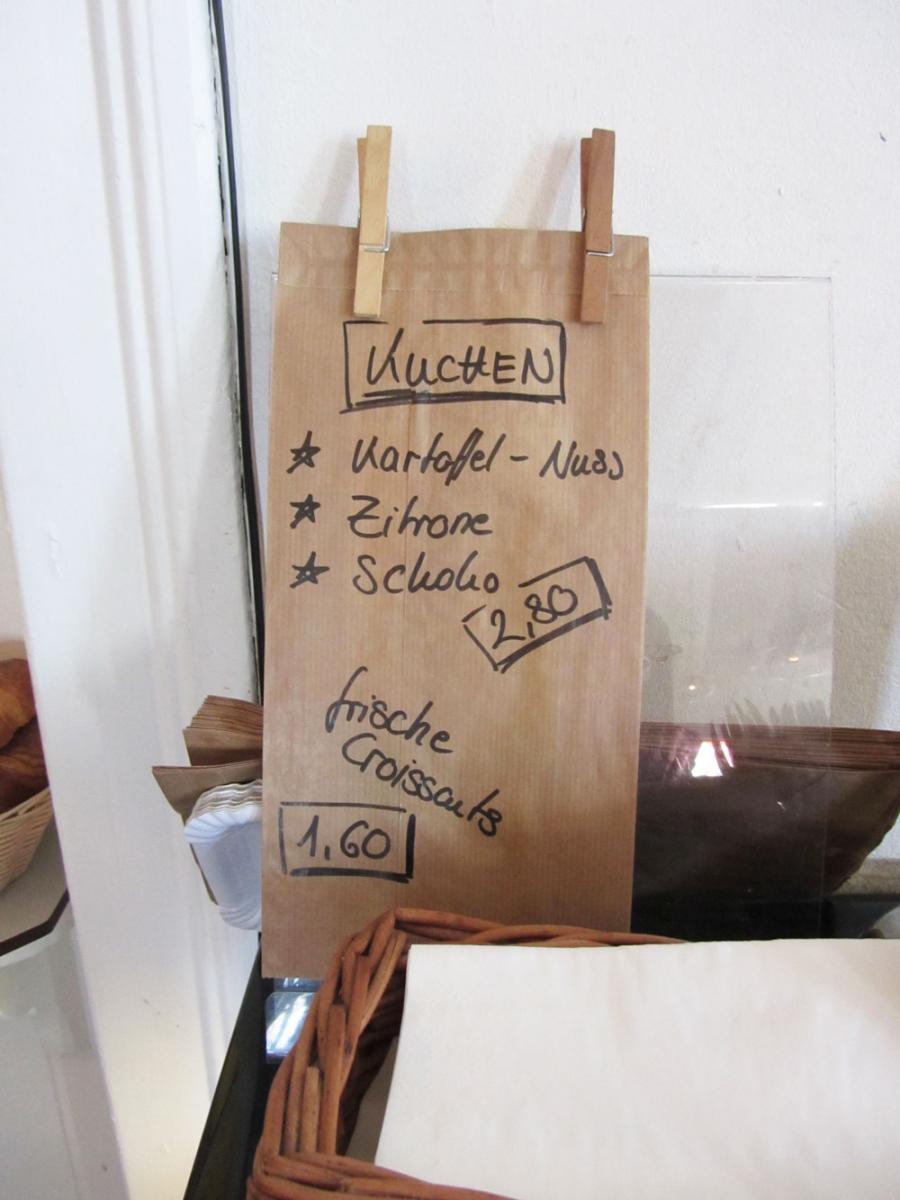 KUCHEN
★ Kartoffel - Nuss
★ Zitrone
★ Schoko
2,80
frische
Croissants
1,60